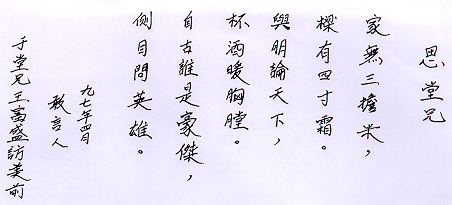 思堂兄
家無三擔米，
樑有四寸霜。
與明論天下，
杯酒暖胸膛。
自古誰是豪傑，
側目問英雄。
九七年四月
敢言人
于堂兄王萬盛訪美前